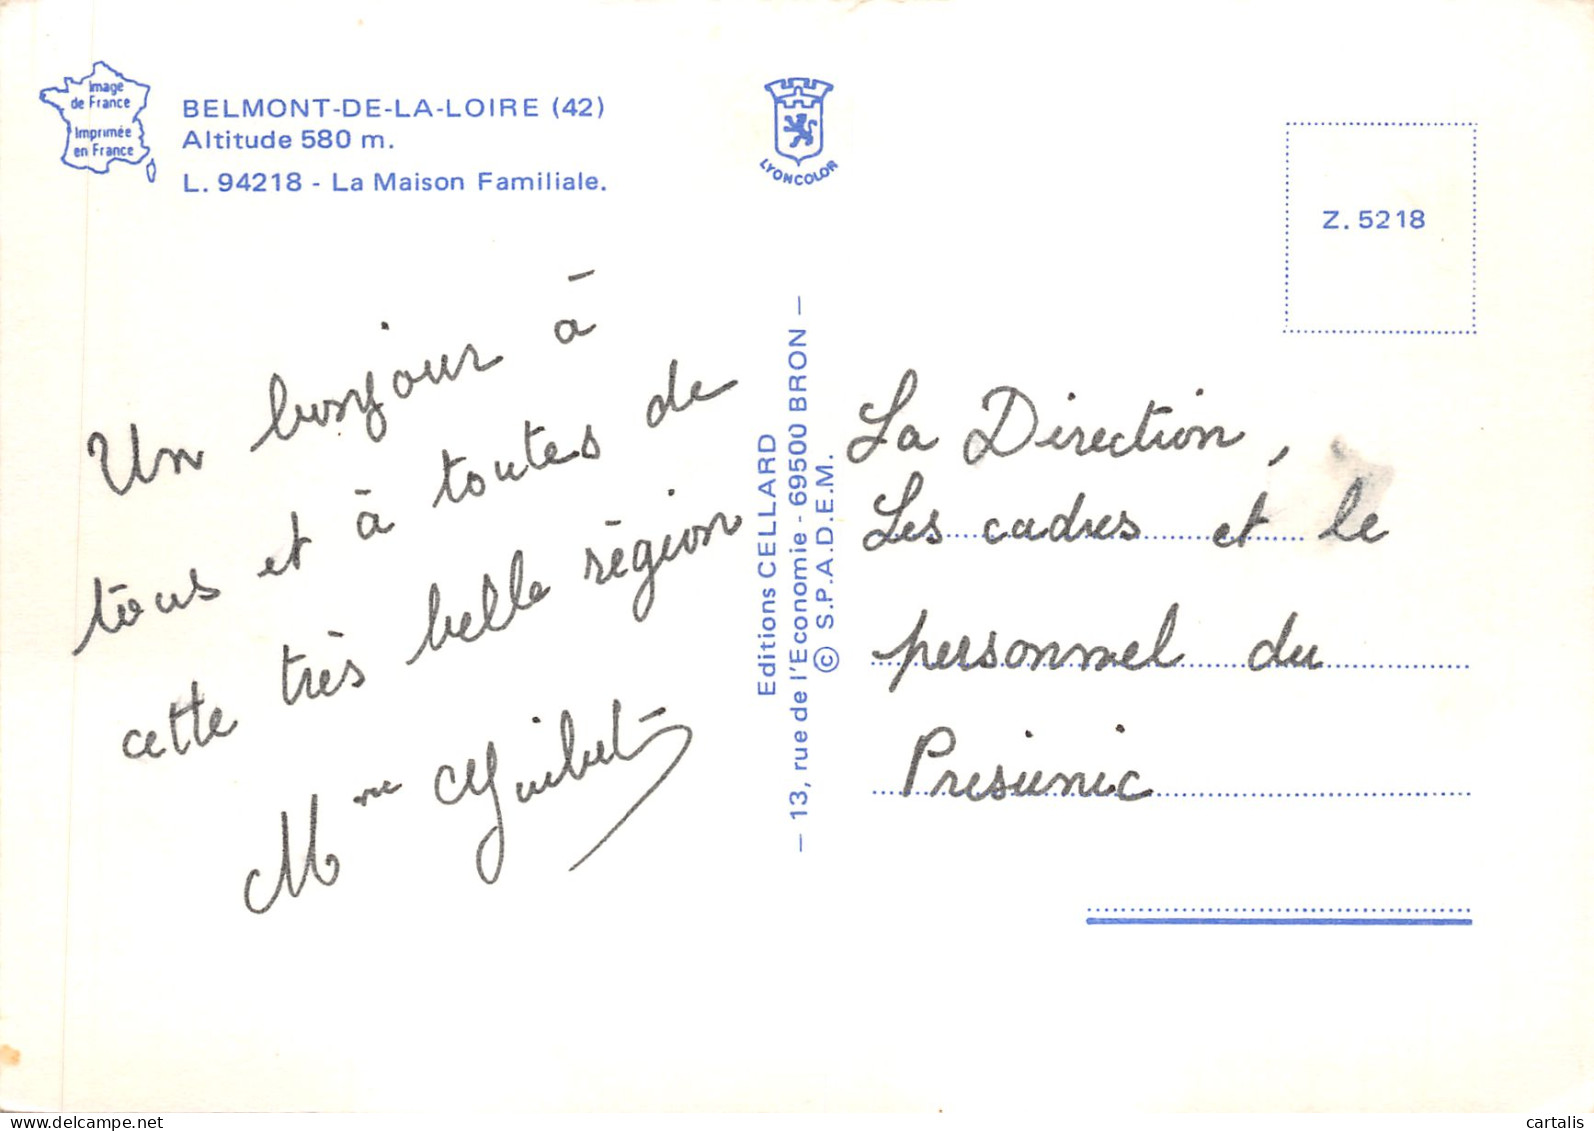 Image
de France
Imprimée
en France
BELMONT-DE-LA-LOIRE (42)
Altitude 580 m.
L. 94218 - La Maison Familiale.
LYONCOLOR
Z. 5218
Un bonjour à
tous et à toutes de
cette très belle région
Mme Guibet
Editions CELLARD
— 13, rue de l'Economie - 69500 BRON —
© S.P.A.D.E.M.
La Direction,
Les cadres et le
personnel du
Prisunic
www.delcampe.net
cartalis